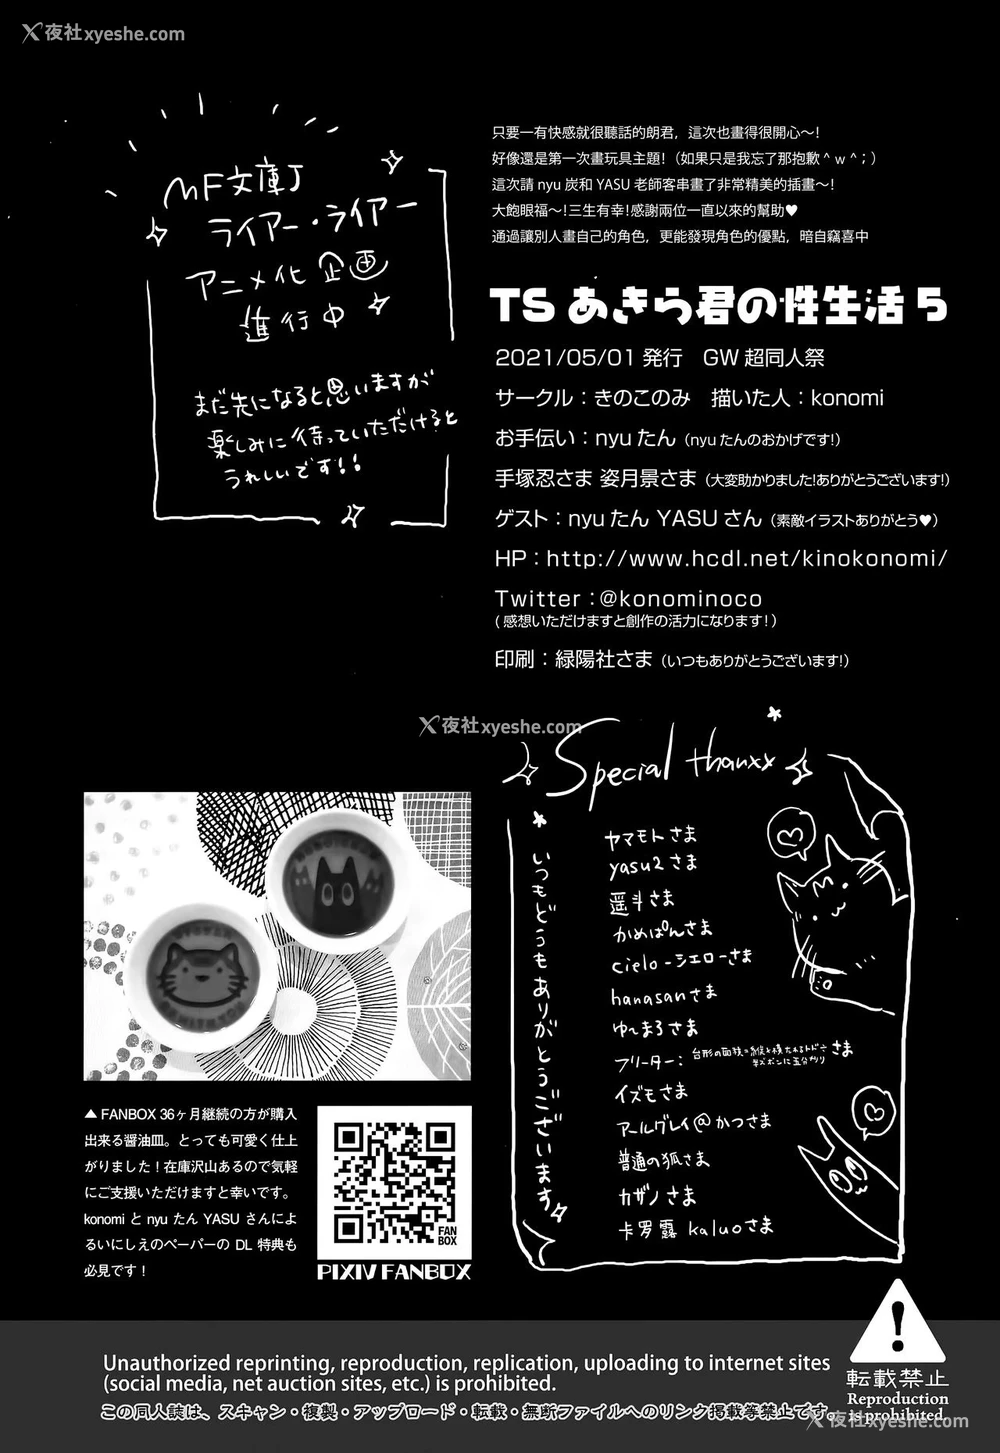 夜社xyeshe.com
MF文庫J
ライアー・ライアー
アニメ化企画
進行中
まだ先になると思いますが
楽しみに待っていただけると
うれしいです!!
只要一有快感就很聽話的朗君，這次也畫得很開心～!
好像還是第一次畫玩具主題!（如果只是我忘了那抱歉＾ｗ＾；）
這次請 nyu 炭和 YASU 老師客串畫了非常精美的插畫～!
大飽眼福～!三生有幸!感謝兩位一直以來的幫助♥
通過讓別人畫自己的角色，更能發現角色的優點，暗自竊喜中
TS あきら君の性生活 5
2021/05/01 発行　GW 超同人祭
サークル：きのこのみ　描いた人：konomi
お手伝い：nyu たん（nyu たんのおかげです!）
手塚忍さま 姿月景さま（大変助かりました!ありがとうございます!）
ゲスト：nyu たん YASU さん（素敵イラストありがとう♥）
HP：http://www.hcdl.net/kinokonomi/
Twitter：@konominoco
(感想いただけますと創作の活力になります!)
印刷：緑陽社さま（いつもありがとうございます!）
夜社xyeshe.com
Special thanxx
いつもどうもありがとうございます
ヤマモトさま
yasu2さま
遥斗さま
かめぱんさま
cielo-シエローさま
hanasanさま
ゆ〜まろさま
フリーター：
さま
イズモさま
アールグレイ@かつさま
普通の狐さま
カザノさま
卡罗露 kaluoさま
▲ FANBOX 36ヶ月継続の方が購入
出来る醤油皿。とっても可愛く仕上
がりました！在庫沢山あるので気軽
にご支援いただけますと幸いです。
konomi と nyu たん YASU さんによ
るいにしえのペーパーの DL 特典も
必見です！
FAN
BOX
PIXIV FANBOX
Unauthorized reprinting, reproduction, replication, uploading to internet sites
(social media, net auction sites, etc.) is prohibited.
この同人誌は、スキャン・複製・アップロード・転載・無断ファイルへのリンク掲載等禁止です。
転載禁止
Reproduction
is prohibited.
夜社xyeshe.com